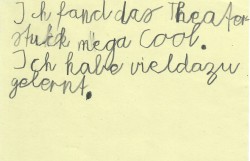 Ich fand das Theater
stukk mega cool.
Ich habe viel dazu
gelernt.